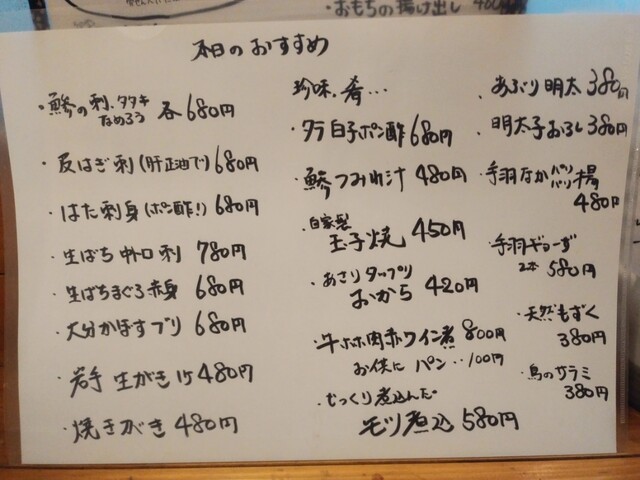 ・おもちの揚げ出し 480
本日のおすすめ
・鯵の刺、タタキ なめろう 各680円
・皮はぎ刺(肝正油で)680円
・はた刺身(ポン酢!)680円
・生ばち中トロ刺 780円
・生ばちまぐろ赤身 680円
・大分かぼすブリ 680円
・岩手 生がき 1ケ 480円
・焼きがき 480円
珍味、肴…
・タラ白子ポン酢 680円
・鯵つみれ汁 480円
・自家製 玉子焼 450円
・あさりタップリ おから 420円
・牛ホホ肉赤ワイン煮 800円
お供に パン‥100円
・じっくり煮込んだ
モツ煮込 580円
・あぶり明太 380円
・明太子おろし 380円
・手羽なか パリパリ揚
480円
・手羽ギョーザ
2本 580円
・天然もずく
380円
・鳥のサラミ
380円